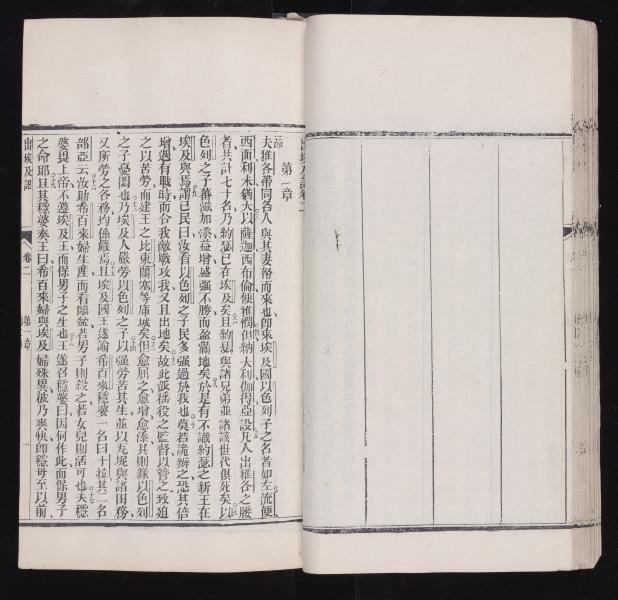 第一章
夫雅各帶同各人與其妻帑而來也卽來埃及國以色列子之名者如左流便
西面利未猶大以薩迦西布倫便雅憫但納大利伽得亞設凡人出雅各之腰
者共計七十名乃約瑟已在埃及矣且約瑟與諸兄弟並諸該世代俱死矣以
色列之子蕃滋加添益增盛强不勝而盈滿地矣於是有不識約瑟之新王在
埃及與焉謂已民曰汝看以色列之子民多强過於我也莫若詭辦之恐其倍
增遇有戰時而合我敵戰攻我又且出地矣故此派徭役之監督以管之致迫
之以苦勞而建王之比東蘭塞等庫城矣但愈屈之愈增愈添其則緣以色列
之子憂悶也乃埃及人嚴勞以色列之子以强勞苦其生並以瓦坭與諸田務
又所勞之各務均係嚴焉且埃及國王遂諭希百來穩婆一名曰十拉其二名
部亞云汝助希百來婦生產而看臨盆若男子則殺之若女兒則活可也夫穩
婆畏上帝不遵埃及王而保男子之生也王遂召穩婆曰因何作此而保男子
之命耶且其穩婆奏王曰希百來婦與埃及婦殊異彼乃爽快卽穩母至以前
出埃及記 卷二 第一章